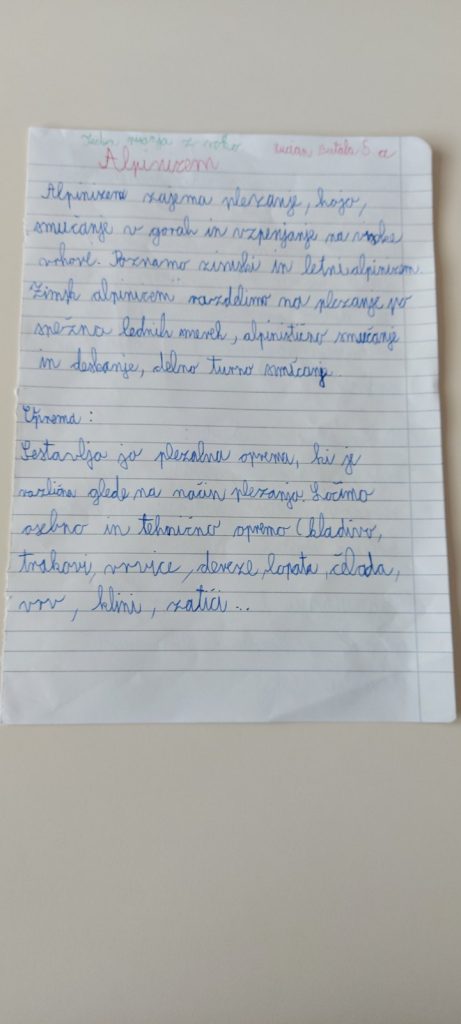 Alpinizem
Alpinizem zajema plezanje, hojo,
smučanje v gorah in vzpenjanje na visoke
vrhove. Poznamo zimski in letni alpinizem.
Zimsk alpinizem razdelimo na plezanje po
snežno lednih smereh, alpinistično smučanje
in deskanje, delno turno smučanje.
Oprema :
Sestavlja jo plezalna oprema, ki je
različna glede na način plezanja. Ločimo
osebno in tehnično opremo (kladivo,
trakovi, vrvice, dereze, lopata, čelada,
vrv, klini, zatiči ...